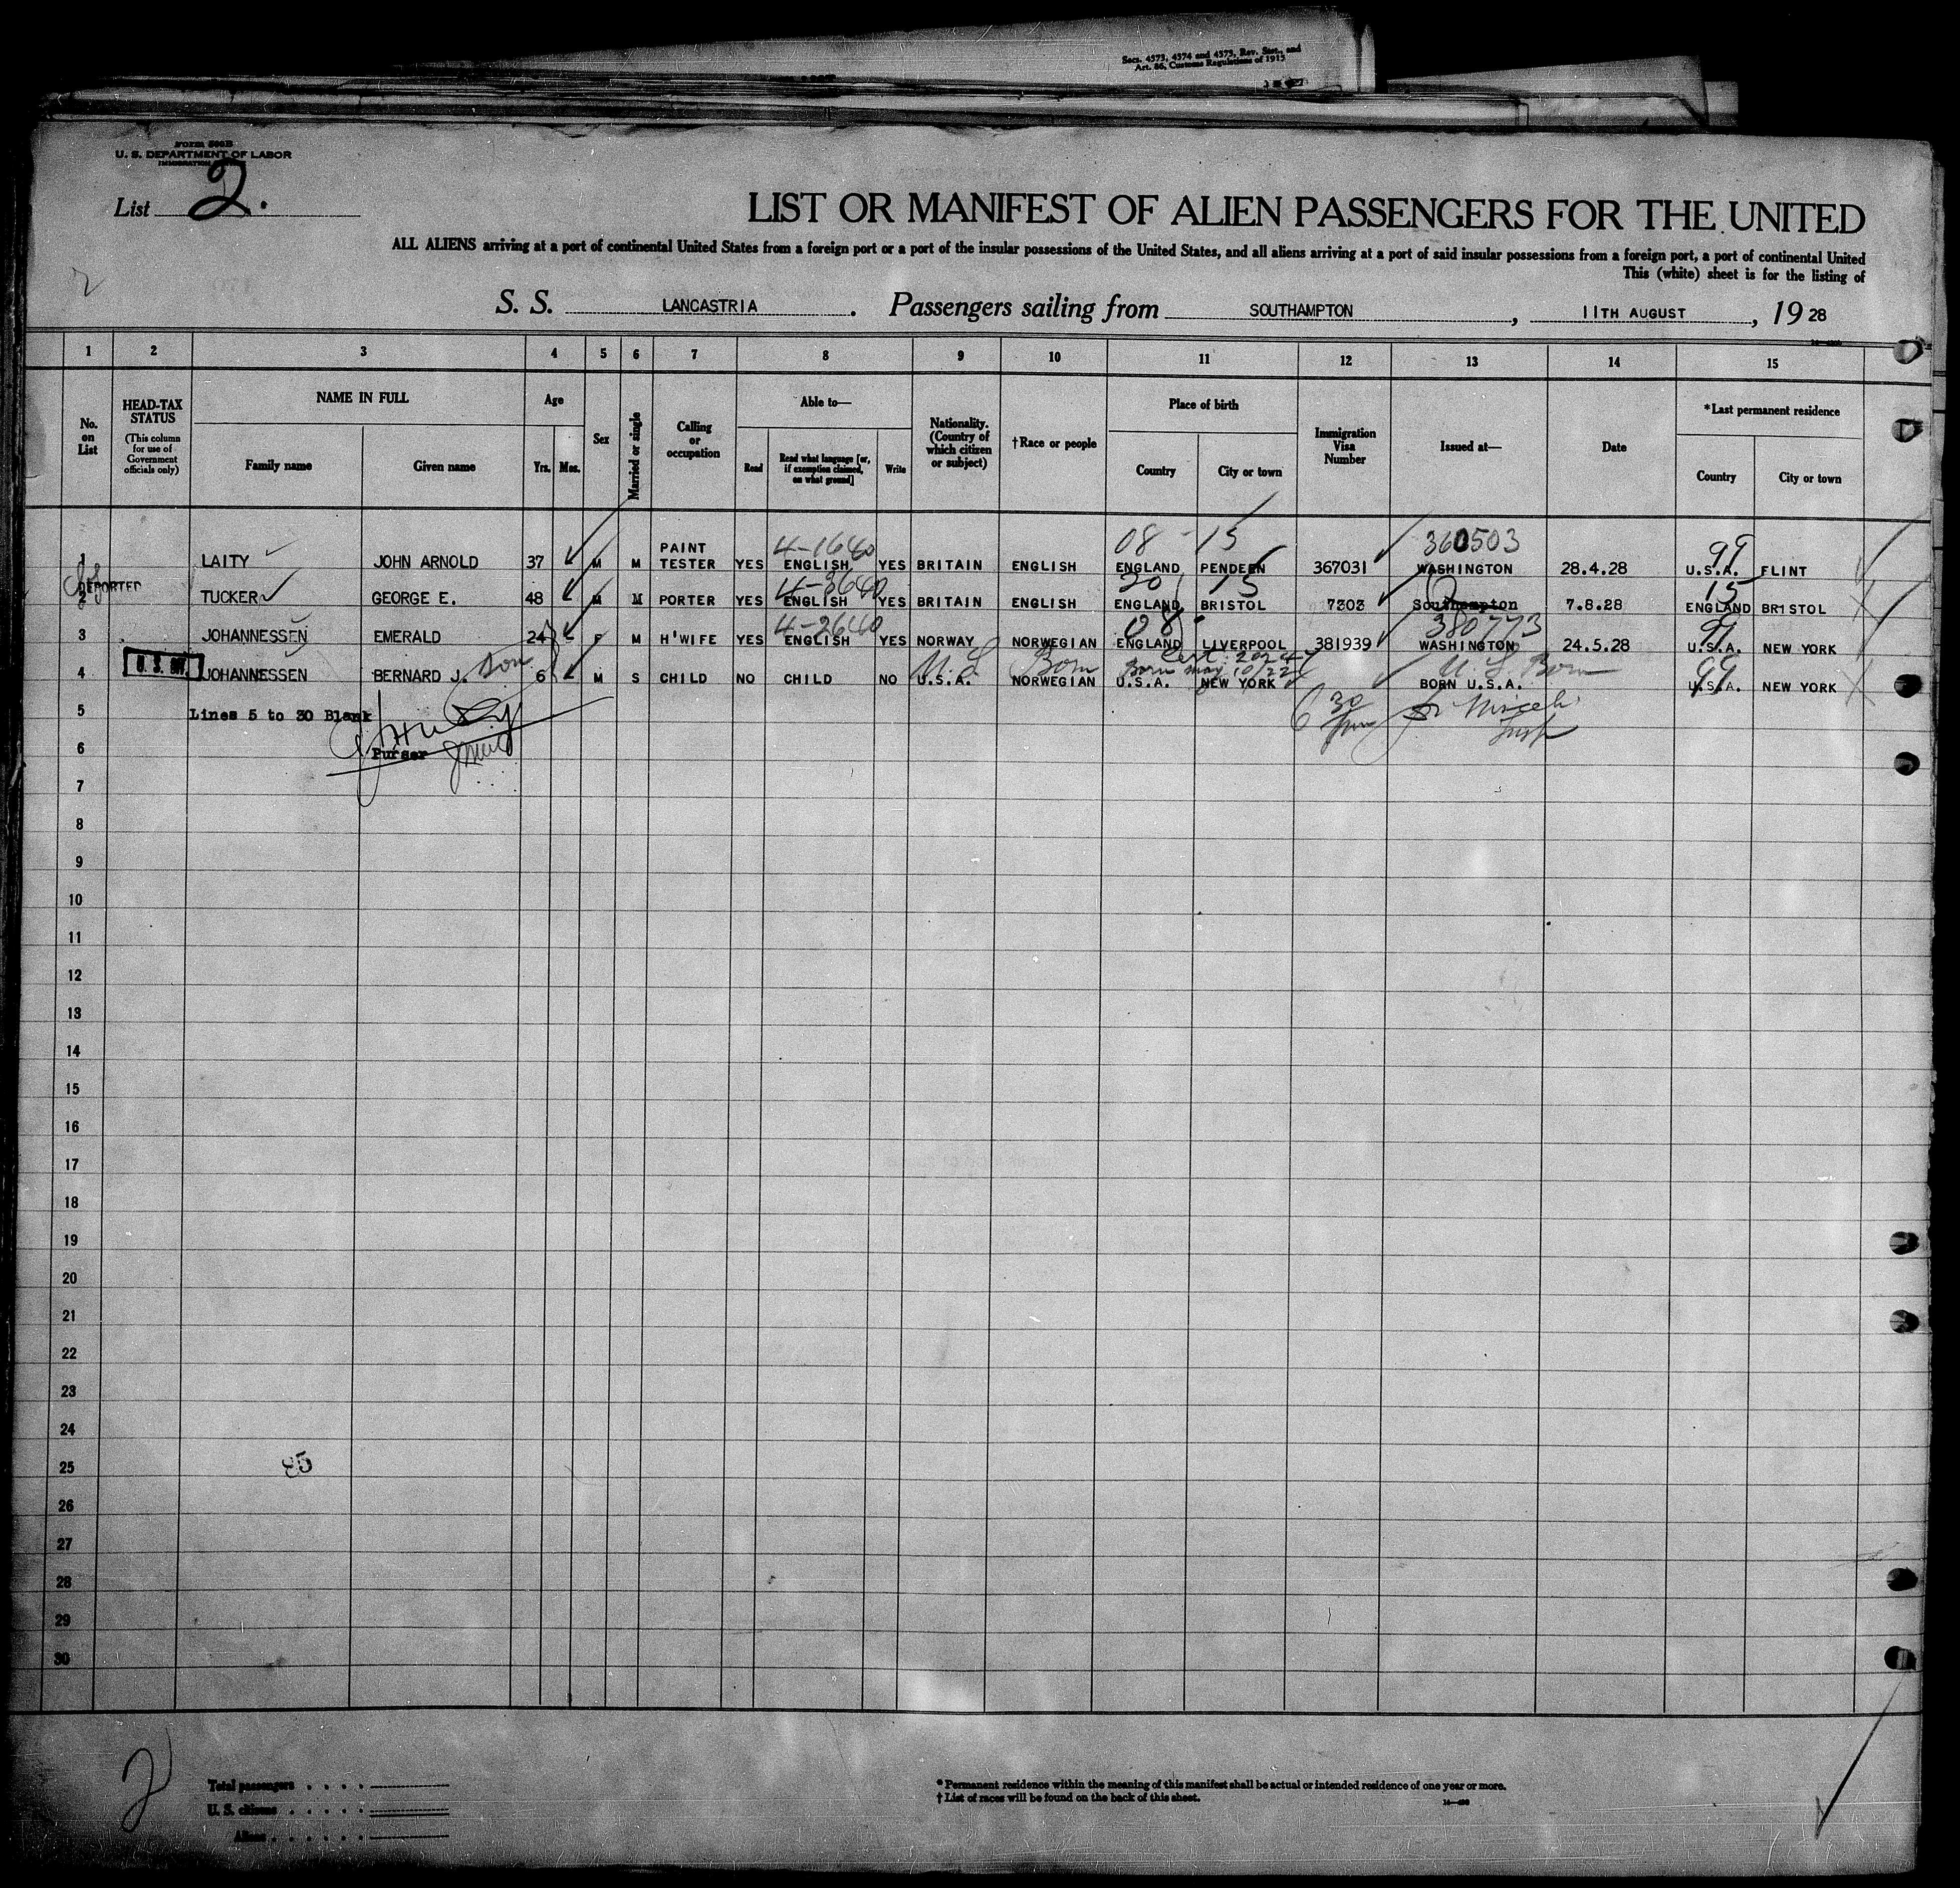 Secs. 4573, 4574 and 4575, Rev. Stat., and
Art. 86, Customs Regulations of 1915
Form 500B
U. S. DEPARTMENT OF LABOR
IMMIGRATION
List 2.
LIST OR MANIFEST OF ALIEN PASSENGERS FOR THE UNITED
ALL ALIENS arriving at a port of continental United States from a foreign port or a port of the insular possessions of the United States, and all aliens arriving at a port of said insular possessions from a foreign port, a port of continental United
This (white) sheet is for the listing of
2
S. S. LANCASTRIA. Passengers sailing from SOUTHAMPTON, 11TH AUGUST, 19 28
1 2 3 4 5 6 7 8 9 10 11 12 13 14 15
No. on List
HEAD-TAX STATUS
(This column for use of Government officials only)
NAME IN FULL
Family name
Given name
Age
Yrs. Mos.
Sex
Married or single
Calling or occupation
Able to—
Read
Read what language [or, if exemption claimed, on what ground]
Write
Nationality. (Country of which citizen or subject)
†Race or people
Place of birth
Country
City or town
Immigration Visa Number
Issued at—
Date
*Last permanent residence
Country
City or town
4-1640 08 - 15 360503 99
1 LAITY JOHN ARNOLD 37 M M PAINT TESTER YES ENGLISH YES BRITAIN ENGLISH ENGLAND PENDEEN 367031 WASHINGTON 28.4.28 U.S.A. FLINT
DEPORTED 4-3640 20 15 15
2 TUCKER GEORGE E. 48 M M PORTER YES ENGLISH YES BRITAIN ENGLISH ENGLAND BRISTOL 7303 Southampton 7.8.28 ENGLAND BRISTOL
4-2640 08 380773 99
3 JOHANNESSEN EMERALD 24 F M H'WIFE YES ENGLISH YES NORWAY NORWEGIAN ENGLAND LIVERPOOL 381939 WASHINGTON 24.5.28 U.S.A. NEW YORK
Son U.S. Born Born May 10/22 U.S. Born 99
4 JOHANNESSEN BERNARD J. 6 M S CHILD NO CHILD NO U.S.A. NORWEGIAN U.S.A. NEW YORK BORN U.S.A. U.S.A. NEW YORK
5 Lines 5 to 30 Blank
6 Purser
7
8
9
10
11
12
13
14
15
16
17
18
19
20
21
22
23
24
25
26
27
28
29
30
2
Total passengers
U. S. citizens
Aliens
* Permanent residence within the meaning of this manifest shall be actual or intended residence of one year or more.
† List of races will be found on the back of this sheet.